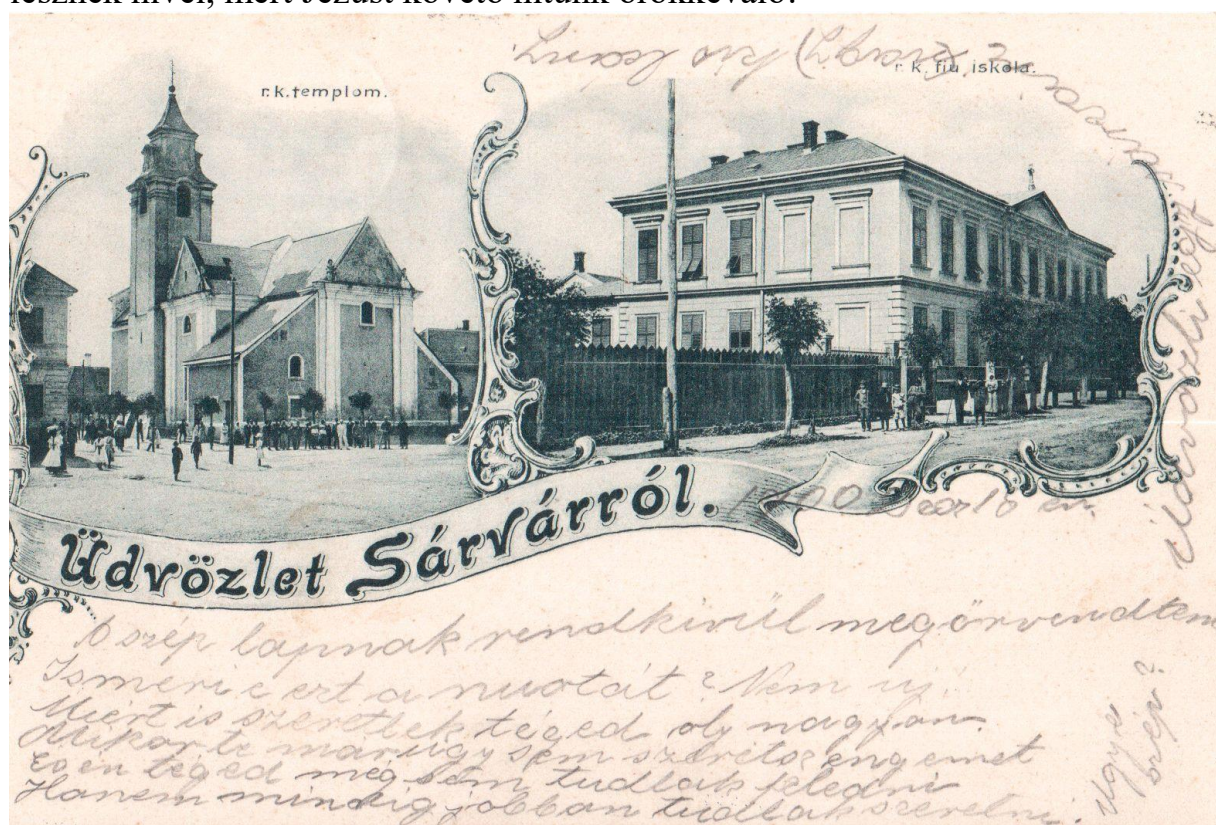 lesznek hívei, mert Jézust követő hitünk örökkévaló!
r.k.templom.
r. k. fiu iskola.
Üdvözlet Sárvárról.
1900
A szép lapnak rendkivül megörvendtem
Ismeri e ezt a nuotát? Nem uj.
Miért is szeretlek téged oly nagyon
Mikor te már ugy sem szeretsz engemet
És én téged még sem tudlak feledni
Hanem mindig jobban tudlak szeretni.
Ugye
szép?
kis leány
üdvözli